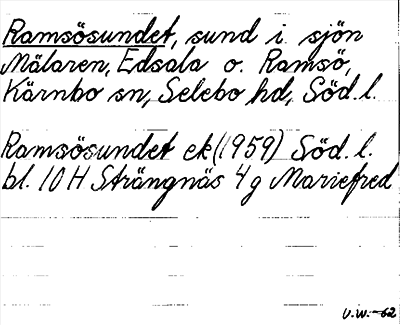 Ramsösundet, sund i sjön
Mälaren, Edsala o. Ramsö,
Kärnbo sn, Selebo hd, Söd.l.
Ramsösundet ek (1959) Söd.l.
bl. 10 H Strängnäs 4 g Mariefred
U.W.-62